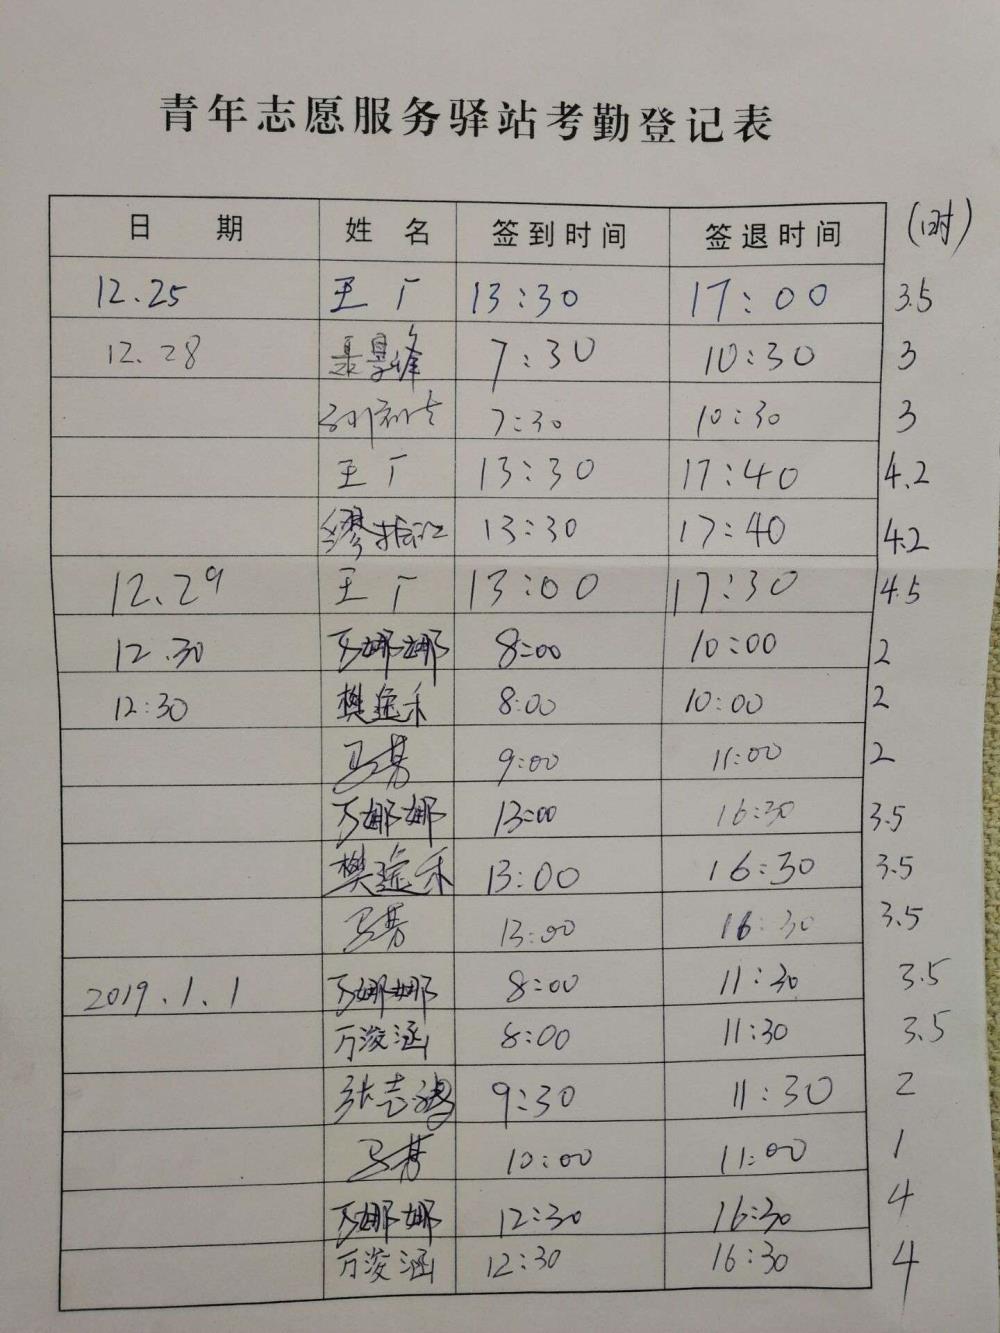 青年志愿服务驿站考勤登记表
日 期 姓 名 签到时间 签退时间 (小时)
12.25 王广 13:30 17:00 3.5
12.28 7:30 10:30 3
7:30 10:30 3
王广 13:30 17:40 4.2
缪 13:30 17:40 4.2
12.29 王广 13:00 17:30 4.5
12.30 娜娜 8:00 10:00 2
12:30 樊逸禾 8:00 10:00 2
马 9:00 11:00 2
娜娜 13:00 16:30 3.5
樊逸禾 13:00 16:30 3.5
马 13:00 16:30 3.5
2019.1.1 娜娜 8:00 11:30 3.5
万浚涵 8:00 11:30 3.5
张志鸿 9:30 11:30 2
马 10:00 11:00 1
娜娜 12:30 16:30 4
万浚涵 12:30 16:30 4